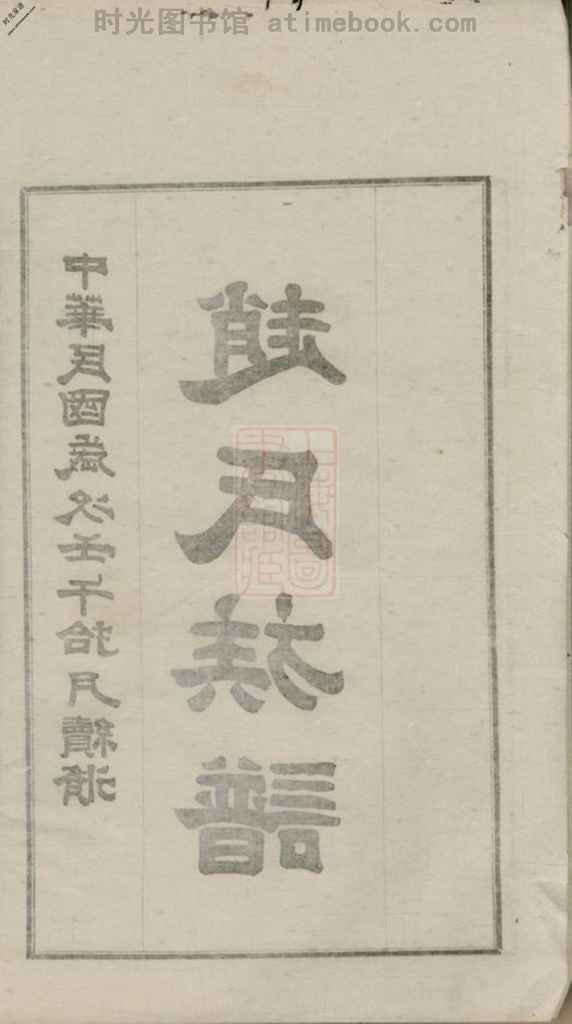 时光图书馆 atimebook.com
趙氏族譜
中華民國歲次壬午月續修